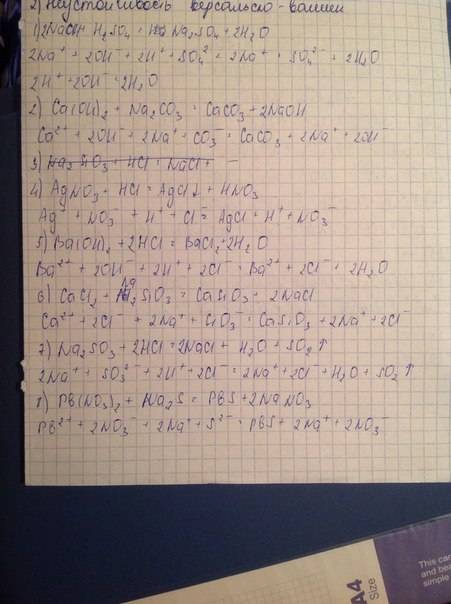 2) Неустойчивость версальско-вашин
1) 2NaOH + H₂SO₄ = Na₂SO₄ + 2H₂O
2Na⁺ + 2OH⁻ + 2H⁺ + SO₄²⁻ = 2Na⁺ + SO₄²⁻ + 2H₂O
2H⁺ + 2OH⁻ = 2H₂O
2) Ca(OH)₂ + Na₂CO₃ = CaCO₃ + 2NaOH
Ca²⁺ + 2OH⁻ + 2Na⁺ + CO₃⁻ = CaCO₃ + 2Na⁺ + 2OH⁻
3) Na₂SiO₃ + HCl = NaCl +
4) AgNO₃ + HCl = AgCl↓ + HNO₃
Ag⁺ + NO₃⁻ + H⁺ + Cl⁻ = AgCl + H⁺ + NO₃⁻
5) Ba(OH)₂ + 2HCl = BaCl₂ + 2H₂O
Ba²⁺ + 2OH⁻ + 2H⁺ + 2Cl⁻ = Ba²⁺ + 2Cl⁻ + 2H₂O
6) CaCl₂ + Na₂SiO₃ = CaSiO₃ + 2NaCl
Ca²⁺ + 2Cl⁻ + 2Na⁺ + SiO₃⁻ = CaSiO₃ + 2Na⁺ + 2Cl⁻
7) Na₂SO₃ + 2HCl = 2NaCl + H₂O + SO₂↑
2Na⁺ + SO₃²⁻ + 2H⁺ + 2Cl⁻ = 2Na⁺ + 2Cl⁻ + H₂O + SO₂↑
8) PB(NO₃)₂ + Na₂S = PBS + 2NaNO₃
PB²⁺ + 2NO₃⁻ + 2Na⁺ + S²⁻ = PBS + 2Na⁺ + 2NO₃⁻
A4
Size
This car
and bea
simple